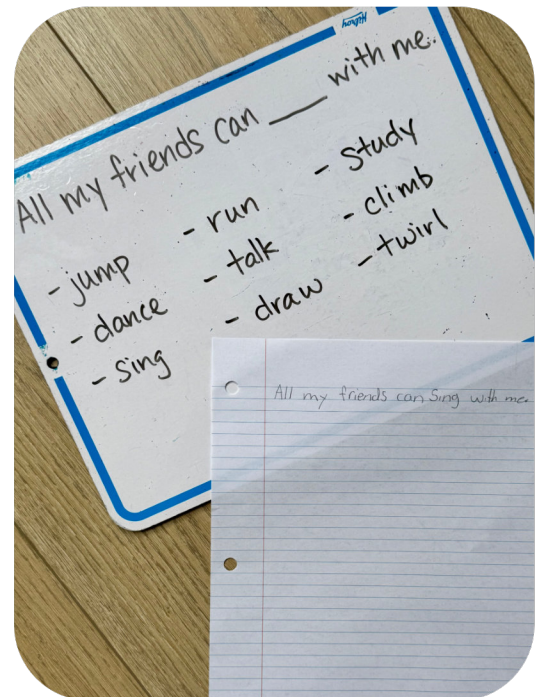 Hilroy
All my friends can ___ with me.
- jump
- dance
- sing
- run
- talk
- draw
- study
- climb
- twirl
All my friends can Sing with me.